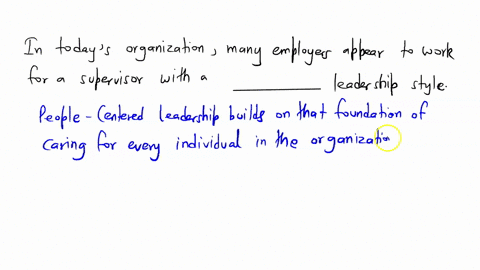 In today's organization, many employers appear to work
for a supervisor with a __________ leadership style.
People-Centered leadership builds on that foundation of
caring for every individual in the organization